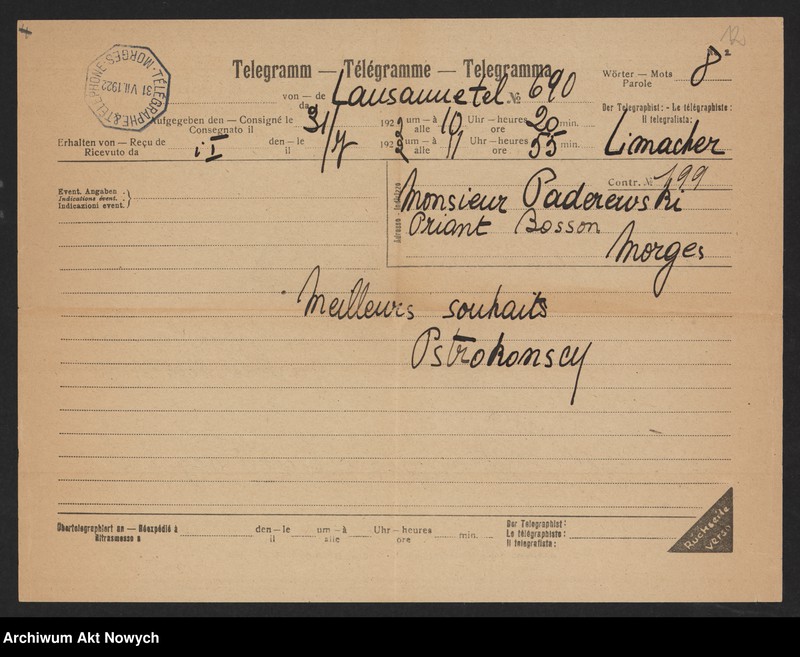 Telegramm — Télégramme — Telegramma
TÉLÉGRAPHE & TÉLÉPHONE · MORGES ·
31 VII. 1922
Wörter — Mots 8
Parole
von — de Lausanne tel № 690
da
Der Telegraphist: - Le télégraphiste:
Il telegrafista:
Limacher
Aufgegeben den — Consigné le 31/7 1922 um — à 10 Uhr — heures 20 min.
Consegnato il alle ore
Erhalten von — Reçu de i I den — le 1922 um — à 11 Uhr — heures 55 min.
Ricevuto da il alle ore
Contr. № 199
Event. Angaben
Indications évent.
Indicazioni event.
Adresse - Indirizzo
Monsieur Paderewski
Priant Bosson
Morges
Meilleurs souhaits
Pstrokonscy
Übertelegraphiert an — Réexpédié à den — le um — à Uhr — heures min.
Ritrasmesso a il alle ore
Der Telegraphist:
Le télégraphiste:
Il telegrafista:
Rückseite
Verso
Archiwum Akt Nowych